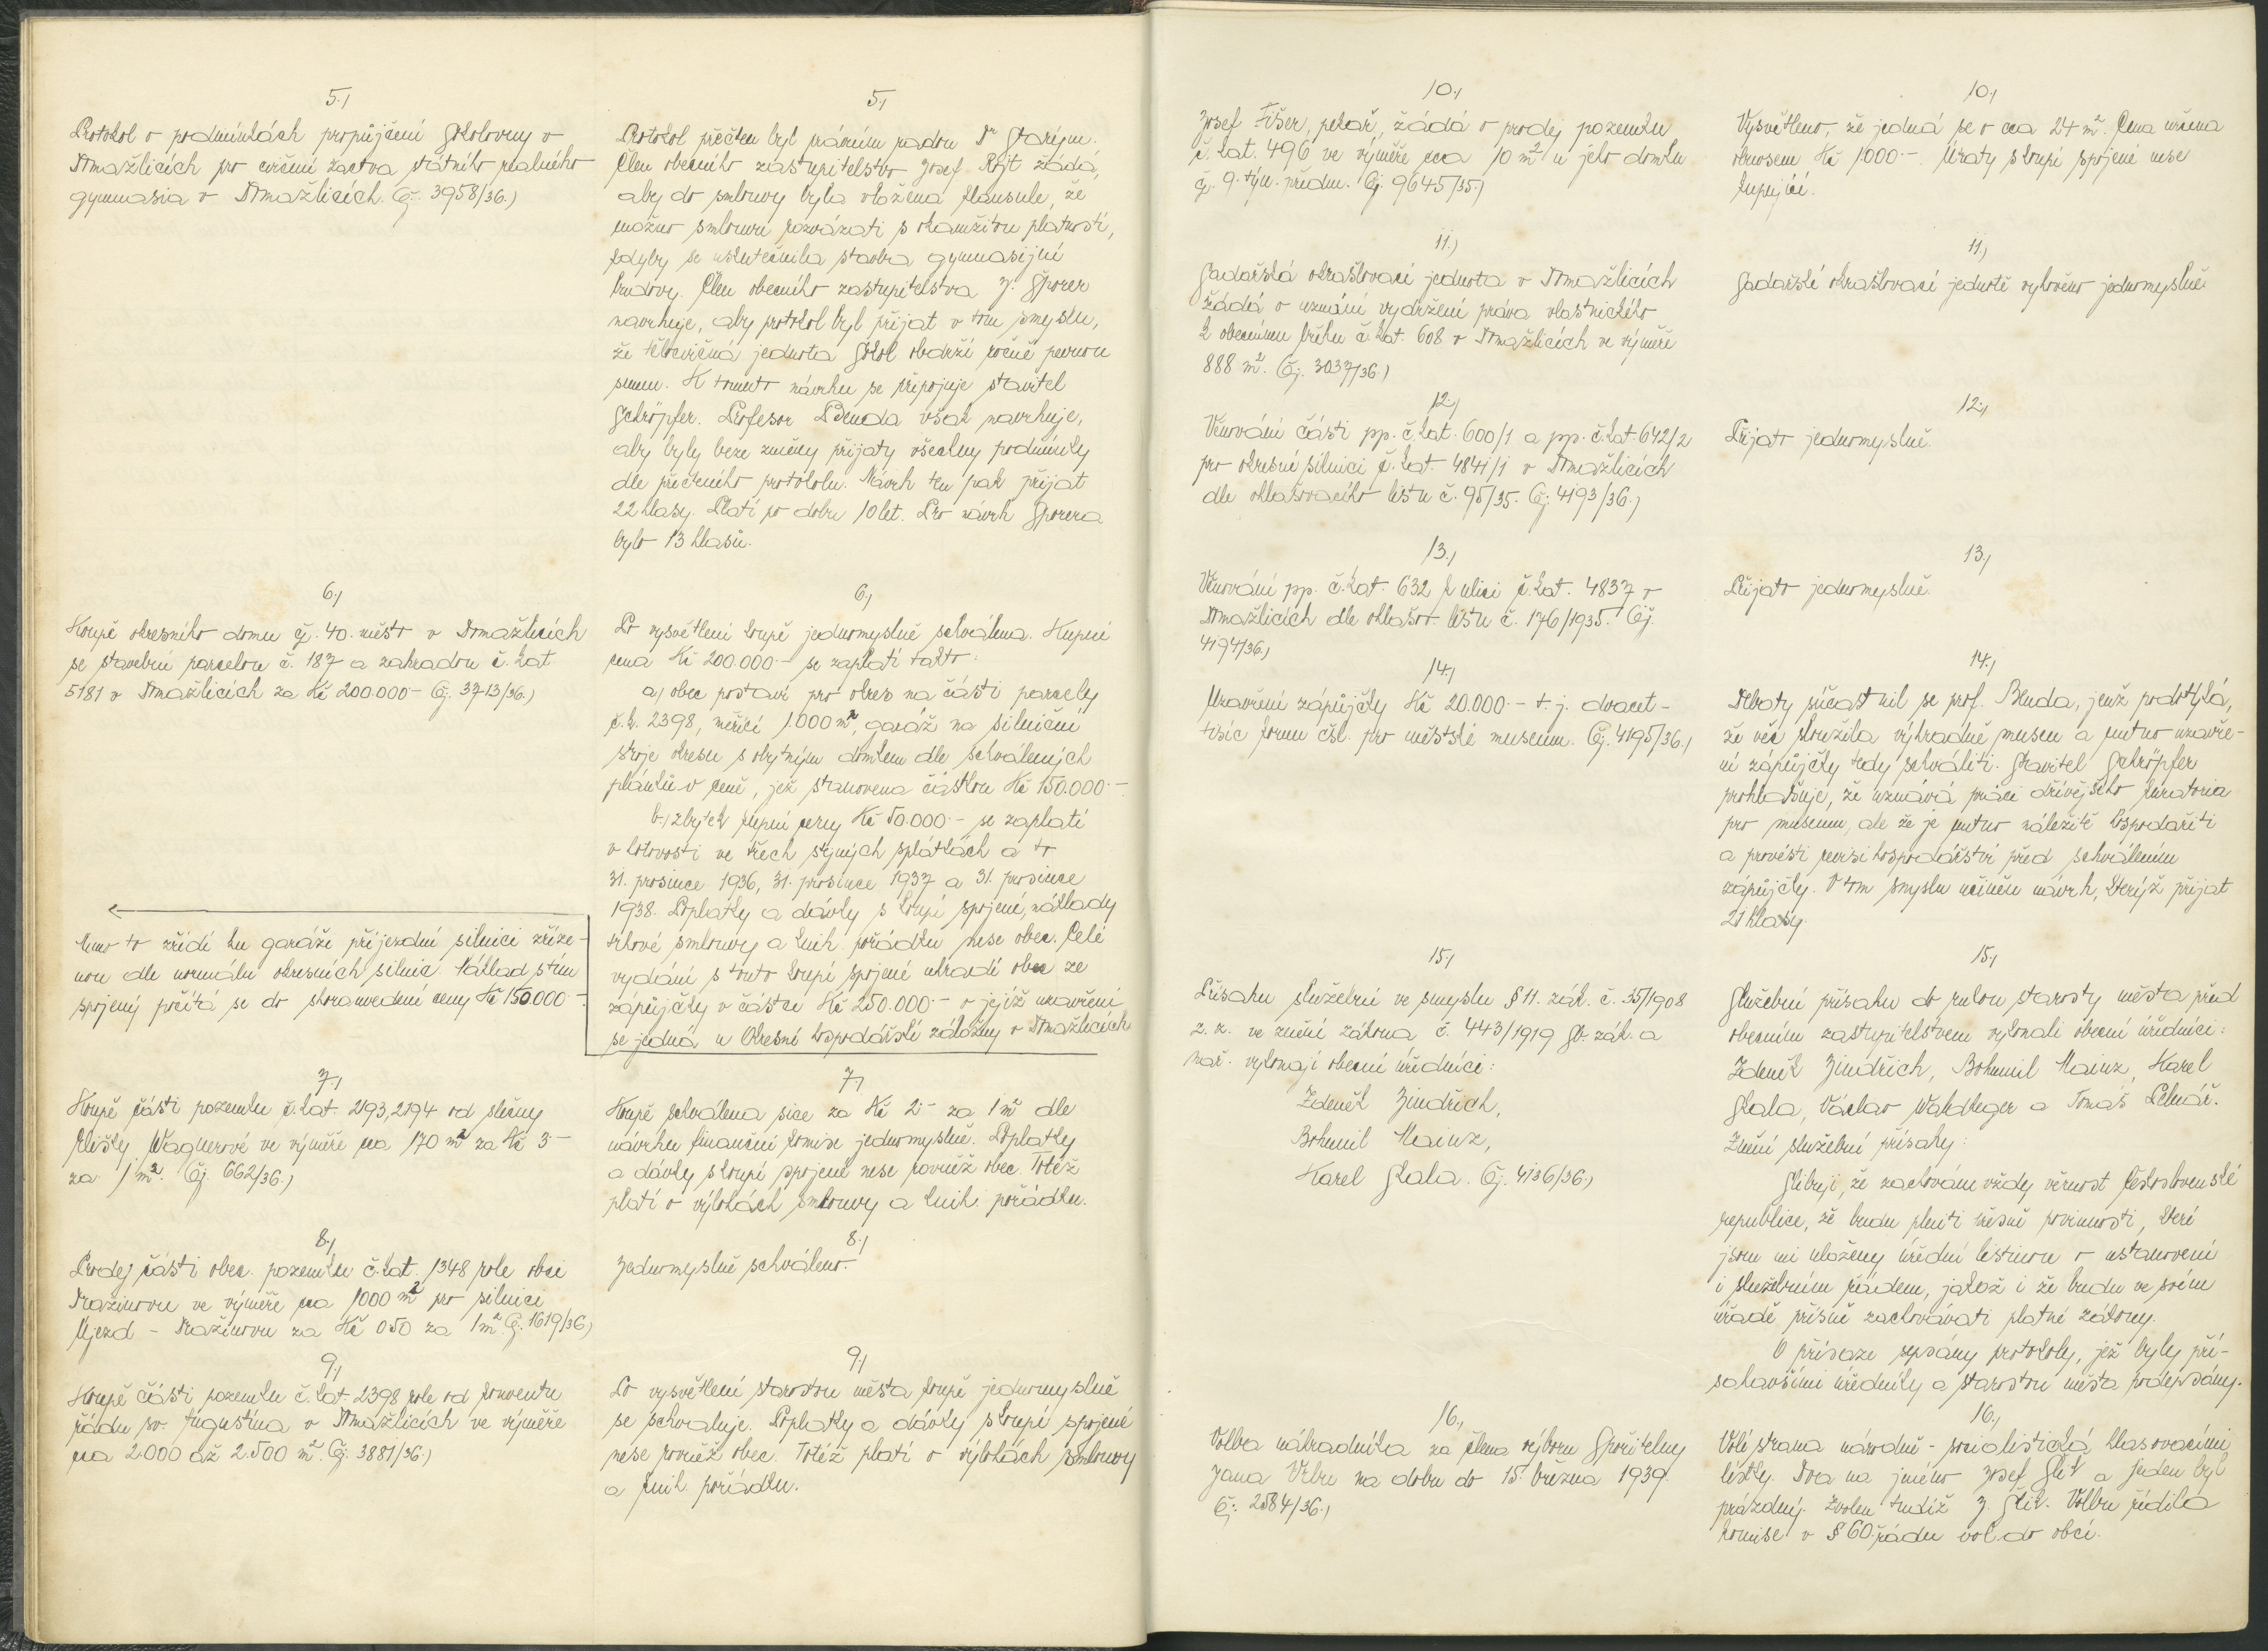 5.)
Protokol o podmínkách propůjčení Sokolovny v
Domažlicích pro cvičení žactva státního reálného
gymnasia v Domažlicích. Čj. 3958/36.)
5.)
Protokol přečten byl právním radou Dr Starým.
Člen obecního zastupitelstva Josef Rojt žádá,
aby do smlouvy byla vložena klausule, že
možno smlouvu rozvázati s okamžitou platností,
kdyby se uskutečnila stavba gymnasijní
budovy. Člen obecního zastupitelstva J. Sporer
navrhuje, aby protokol byl přijat v tom smyslu,
že tělocvičná jednota Sokol obdrží ročně pevnou
sumu. K tomuto návrhu se připojuje stavitel
Schröpfer. Profesor Benda však navrhuje,
aby byly beze změny přijaty všechny podmínky
dle přečteného protokolu. Návrh ten pak přijat
22 hlasy. Platí po dobu 10 let. Pro návrh Sporera
bylo 13 hlasů.
6.)
Koupě okresního domu čp. 40. město v Domažlicích
se stavební parcelou č. 187 a zahradou č. kat
5181 v Domažlicích za Kč 200.000 – Čj. 3713/36.)
6.)
Po vysvětlení koupě jednomyslně schválena. Kupní
cena Kč 200.000 – se zaplatí takto:
a) obec postaví pro okres na části parcely
č. k. 2398, měřící 1000 m², garáž na silniční
stroje okresu s obytným domkem dle schválených
plánků v ceně, jež stanovena částkou Kč 150.000 –
b) zbytek kupní ceny Kč 50.000 – se zaplatí
v hotovosti ve třech stejných splátkách a to
31. prosince 1936, 31. prosince 1937 a 31. prosince
1938. Poplatky a dávky s koupí spojené, náklady
trhové smlouvy a knih. pořádku nese obec. Celé
vydání s touto koupí spojené uhradí obec ze
zápůjčky v částce Kč 250.000 – o jejíž uzavření
se jedná u Okresní hospodářské záložny v Domažlicích.
Mimo to zřídí ku garáži příjezdní silnici zříze-
nou dle normálu okresních silnic. Náklad s tím
spojený počítá se do shorauvedené ceny Kč 150.000 –.
7.)
Koupě části pozemku č. kat. 2193, 2194 od slečny
Elišky Wagnerové ve výměře cca 170 m² za Kč 3 –
za 1 m². Čj. 662/36.)
7.)
Koupě schválena sice za Kč 2 – za 1 m² dle
návrhu finanční komise jednomyslně. Poplatky
a dávky s koupí spojené nese rovněž obec. Totéž
platí o výlohách smlouvy a knih. pořádku.
8.)
Prodej části obec. pozemku č. kat. 1348 role obci
Pražinovu ve výměře cca 1000 m² pro silnici
Újezd – Pražinovu za Kč 0 50 za 1 m². Čj. 1619/36)
8.)
Jednomyslně schváleno.
9.)
Koupě části pozemku č. kat 2398 role od konventu
řádu sv. Augustina v Domažlicích ve výměře
cca 2.000 až 2.500 m². Čj. 3881/36.)
9.)
Po vysvětlení starostou města koupě jednomyslně
se schvaluje. Poplatky a dávky s koupí spojené
nese rovněž obec. Totéž platí o výlohách smlouvy
a knih. pořádku.
10.)
Josef Fišer, pekař, žádá o prodej pozemku
č. kat. 496 ve výměře cca 10 m² u jeho domku
čp. 9. týn. předm. Čj. 9645/35.)
10.)
Vysvětleno, že jedná se o cca 24 m². Cena určena
obnosem Kč 1000 –. Útraty s koupí spojené nese
kupující.
11.)
Sadařská okrašlovací jednota v Domažlicích
žádá o uznání vydržení práva vlastnického
k obecnímu břehu č. kat. 608 v Domažlicích ve výměře
888 m². Čj. 3037/36.)
11.)
Sadařské okrašlovací jednotě vyhověno jednomyslně.
12.)
Věnování části pp. č. kat. 600/1 a pp. č. kat. 642/2
pro okresní silnici č. kat. 4841/1 v Domažlicích
dle ohlašovacího listu č. 95/35. Čj. 4193/36.)
12.)
Přijato jednomyslně.
13.)
Věnování pp. č. kat. 632 k ulici č. kat. 4837 v
Domažlicích dle ohlašov. listu č. 176/1935. Čj.
4194/36.)
13.)
Přijato jednomyslně.
14.)
Uzavření zápůjčky Kč 20.000 – t. j. dvacet-
tisíc korun čsl. pro městské museum. Čj. 4195/36.)
14.)
Debaty súčastnil se prof. Benda, jenž podotýká,
že věc sloužila výhradně museu a nutno uzavře-
ní zápůjčky tedy schváliti. Stavitel Schröpfer
prohlašuje, že uznává práci dřívějšího kuratoria
pro museum, ale že je nutno náležitě hospodařiti
a provésti revisi hospodářství před schválením
zápůjčky. V tom smyslu učiněn návrh, kterýž přijat
21 hlasy.
15.)
Přísahu služební ve smyslu § 11. zák. č. 35/1908
z. z. ve znění zákona č. 443/1919 Sb. zák. a
nař. vykonají obecní úředníci:
Zdeněk Jindřich,
Bohumil Mainz,
Karel Skala. Čj. 4136/36.)
15.)
Služební přísahu do rukou starosty města před
obecním zastupitelstvem vykonali obecní úředníci:
Zdeněk Jindřich, Bohumil Mainz, Karel
Skala, Václav Waldheger a Tomáš Pelnář.
Znění služební přísahy:
Slibuji, že zachovám vždy věrnost Československé
republice, že budu plniti přesně povinnosti, které
jsou mi uloženy úřední listinou o ustanovení
i služebním řádem, jakož i že budu ve svém
úřadě přísně zachovávati platné zákony.
O přísaze sepsány protokoly, jež byly pří-
sahavšími úředníky a starostou města podepsány.
16.)
Volba náhradníka za člena výboru Spořitelny
Jana Vrbu na dobu do 15. března 1939.
Čj. 2584/36.)
16.)
Volí strana národně-socialistická hlasovacími
lístky. Dva na jméno Josef Slík a jeden byl
prázdný. Zvolen tudíž J. Slík. Volbu řídila
komise v § 60. řádu vol. do obcí.